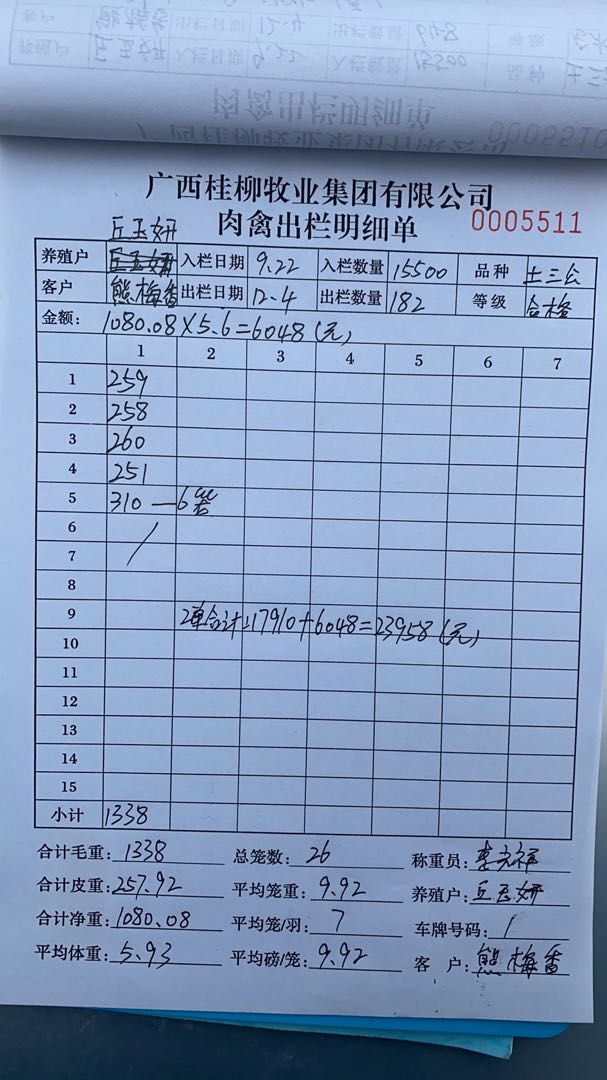 广西桂柳牧业集团有限公司
肉禽出栏明细单 0005511
丘玉妍
养殖户 丘玉妍 入栏日期 9.22 入栏数量 15500 品种 土三公
客户 熊梅香 出栏日期 12.4 出栏数量 182 等级 合格
金额: 1080.08×5.6=6048(元)
1 2 3 4 5 6 7
1 259
2 258
3 260
4 251
5 310 — 6笼
6
7
8
9 2单合计:17910+6048=23958(元)
10
11
12
13
14
15
小计 1338
合计毛重: 1338 总笼数: 26 称重员:
合计皮重: 257.92 平均笼重: 9.92 养殖户: 丘玉妍
合计净重: 1080.08 平均笼/羽: 7 车牌号码: /
平均体重: 5.93 平均磅/笼: 9.92 客 户: 熊梅香